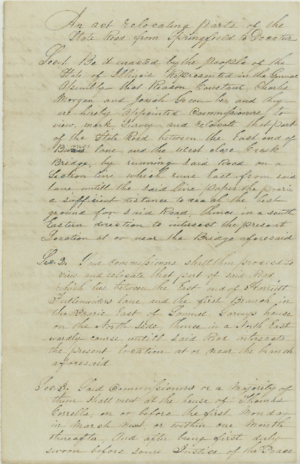 An act relocating parts of the
State Road from Springfield to Decatur
Sec. 1 Be it enacted by the people of the
State of Illinois represented in the General
Assembly that Kason Constant, Charles
Morgan and Josiah Green be and they
are hereby appointed Commissioners to
view, mark, survey and relocate that part
of the State Road between the East end of
lane, and the West slope Creek
Bridge, by running said Road on a
Section line which runs East from said
lane until the said line passes the prairie
a sufficient distance to reach the best
ground for said Road, thence in a south
Eastern direction to intersect the present
location at or near the Bridge aforesaid
Sec. 2. Said commissioners shall then proceed to
view and relocate that part of said Road
which lies between the East end of
lane and the first Branch in
the Prairie East of house
on the North Side, thence in a South East
wardly course untill said Road intersects
the present location at or near the branch
aforesaid
Sec. 3. Said Commissioners or a majority of
them shall meet at the house of Thomas
on or before the first Monday
in March next or within one month
thereafter And after being first duly
sworn before some Justice of the Peace